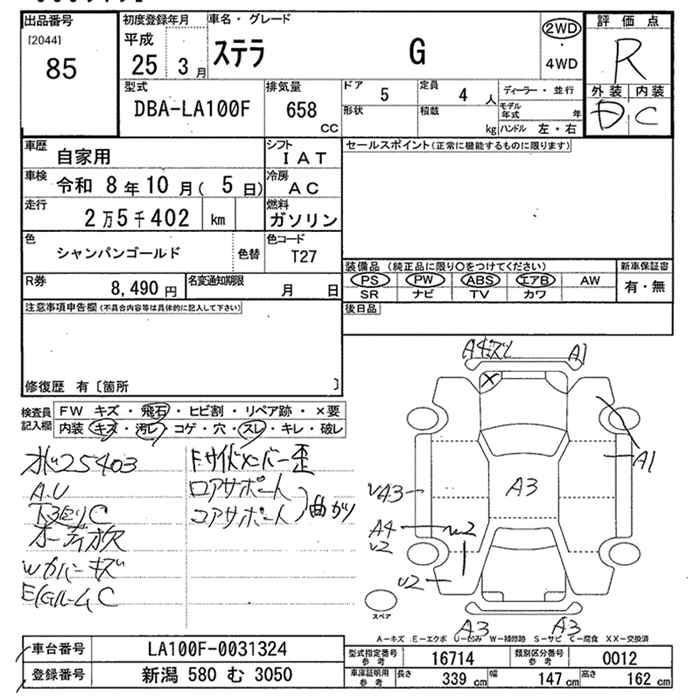 出品番号
[2044]
85
初度登録年月
平成
25 3 月
車名・グレード
ステラ G
2WD
・
4WD
評価点
R
外装 内装
D C
型式
DBA-LA100F
排気量
658
CC
ドア 5
定員 4 人
ディーラー・並行
形状
積載
kg
モデル年式 年
ハンドル 左・右
車歴
自家用
シフト
I A T
セールスポイント(正常に機能するものに限ります)
車検 令和 8 年 10 月 ( 5 日)
冷房
A C
走行
2 万 5 千 402 km
燃料
ガソリン
色
シャンパンゴールド
色替
色コード
T27
装備品 (純正品に限り○をつけてください)
新車保証書
PS PW ABS エアB AW
有・無
SR ナビ TV カワ
R券
8,490 円
名変通知期限
月 日
後日品
注意事項申告欄(不具合内容等は具体的に記入して下さい)
修復歴 有〔箇所 〕
検査員
記入欄
FW キズ・飛石・ヒビ割・リペア跡・×要
内装・キズ・汚レ・コゲ・穴・スレ・キレ・破レ
25403
A.U
C
オーディオ欠
Wカバーキズ
E/GルームC
Fサイドメンバー歪
ロアサポート
コアサポート
曲がり
A4 ズレ
A1
A1
A3
A3
A4
U2
U2
A3
A3
スペア
A―キズ E―エクボ U―凹み W―補修跡 S―サビ C―腐食 XX―交換済
車台番号
LA100F-0031324
登録番号
新潟 580 む 3050
型式指定番号
参考
16714
類別区分番号
参考
0012
車庫証明用
参考
長さ 339 cm
幅 147 cm
高さ 162 cm